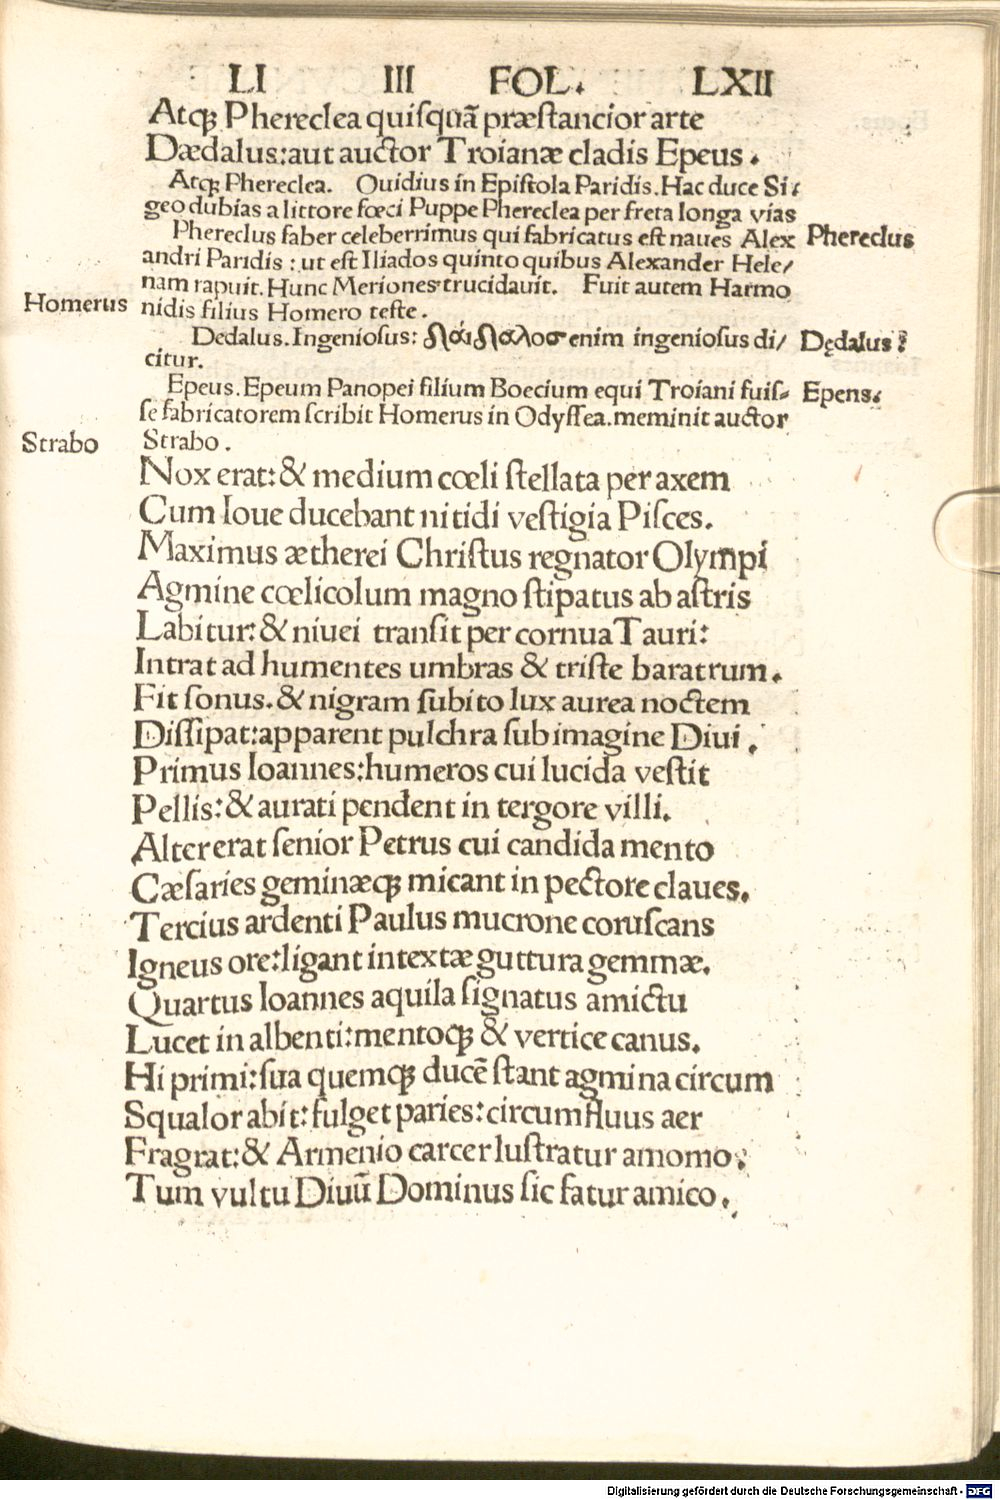 LI III FOL. LXII
Atqꝫ Phereclea quiſquã præſtancior arte
Dædalus:aut auctor Troianæ cladis Epeus.
Atqꝫ Phereclea. Ouidius in Epiſtola Paridis.Hac duce Si⸗
geo dubias a littore fœci Puppe Phereclea per freta longa vias
Phereclus faber celeberrimus qui fabricatus eſt naues Alex
Phereclus
andri Paridis : ut eſt Iliados quinto quibus Alexander Hele/
nam rapuit. Hunc Meriones trucidavit. Fuit autem Harmo
Homerus
nidis filius Homero teſte.
Dedalus.Ingenioſus: δαίδαλοσ enim ingenioſus di/
Dędalus
citur.
Epeus. Epeum Panopei filium Boecium equi Troiani fuiſ⸗
Epens.
ſe fabricatorem ſcribit Homerus in Odyſſea.meminit auctor
Strabo
Strabo.
Nox erat:& medium cœli ſtellata per axem
Cum Ioue ducebant nitidi veſtigia Piſces.
Maximus ætherei Chriſtus regnator Olympi
Agmine cœlicolum magno ſtipatus ab aſtris
Labitur:& niuei tranſit per cornua Tauri:
Intrat ad humentes umbras & triſte baratrum.
Fit ſonus.& nigram ſubito lux aurea noctem
Diſſipat:apparent pulchra ſub imagine Diui.
Primus Ioannes:humeros cui lucida veſtit
Pellis:& aurati pendent in tergore villi.
Alter erat ſenior Petrus cui candida mento
Cæſaries geminæqꝫ micant in pectore claues.
Tercius ardenti Paulus mucrone coruſcans
Igneus ore:ligant intextæ guttura gemmæ.
Quartus Ioannes aquila ſignatus amictu
Lucet in albenti:mentoqꝫ & vertice canus.
Hi primi:ſua quemqꝫ ducẽ ſtant agmina circum
Squalor abit:fulget paries:circumfluus aer
Fragrat:& Armenio carcer luſtratur amomo:
Tum vultu Diuũ Dominus ſic fatur amico.
Digitalisierung gefördert durch die Deutsche Forschungsgemeinschaft - DFG